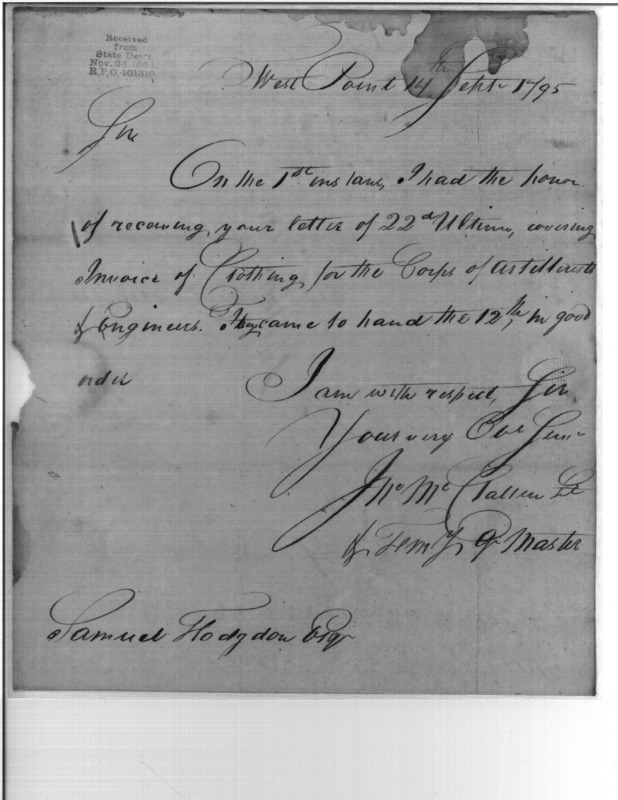 Received
from
State Dep't
Nov. 24, 1894.
R.P.O. 401310.
West Point 14th Septr 1795
Sir
On the 1st instant, I had the honor
of receiving your letter of 22d Ultimo, covering
Invoice of Clothing, for the Corps of Artillerists
& Engineers. They came to hand the 12th, in good
order
I am with respect, Sir
Your very Obe Serv
Jno McClallen Lt
& Temy Qr Master
Samuel Hodgdon Esqr